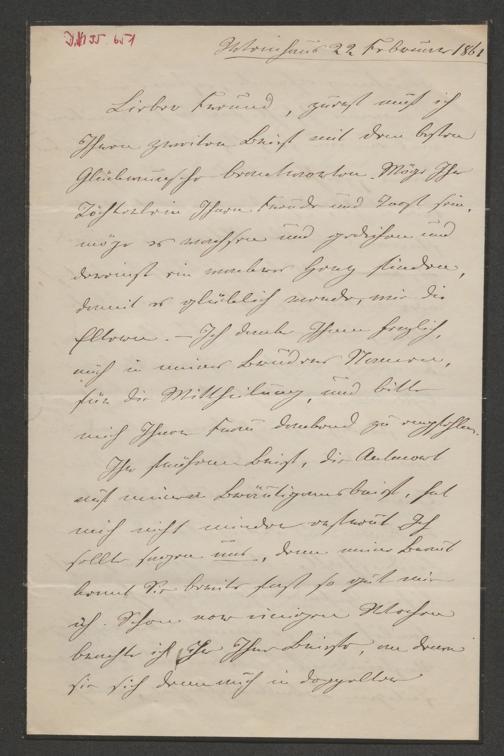 22 Februar 1861
Lieber Freund, zuerst muß ich
Ihren zweiten Brief mit dem besten
Glückwunsche beantworten. Möge Ihr
Töchterlein Ihnen Freude und Trost sein,
möge es wachsen und gedeihen und
dereinst ein wackeres Herz finden,
damit es glücklich werde, wie die
Eltern. – Ich danke Ihnen herzlich,
auch in meines Bruders Namen,
für die Mittheilung, und bitte
mich Ihrer Frau dankend zu empfehlen.
Ihr früherer Brief, die Antwort
auf meinen Bräutigamsbrief, hat
mich nicht minder erfreut Ich
sollte sagen uns, denn meine Braut
kennt Sie bereits fast so gut wie
ich. Schon vor einigen Wochen
brachte ich Ihr Ihre Briefe, an denen
sie sich denn auch in doppelter